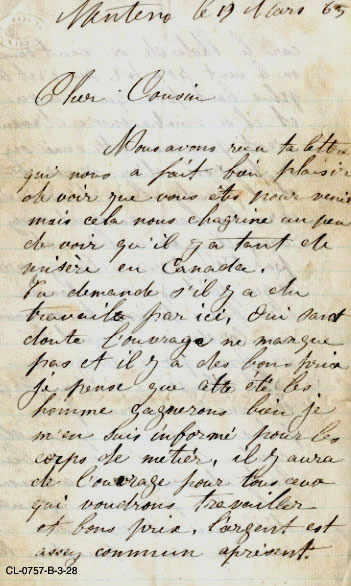 Manteno le 19 Mars 65
Cher Cousin
Nous avons reçu ta lettre
qui nous a fait bein plaisir
de voir que vous êtes pour venir
mais cela nous chagrine un peu
de voir qu'il y a tant de
misère en Canada.
Tu demande s'il y a du
travaille par ici, Oui sans
doute l'ouvrage ne manque
pas et il y a des bons prix
Je pense que cette été les
homme gagnerons bien je
m'en suis informé pour les
corps de métier, il y aura
de l'ouvrage pour tous ceux
qui voudrons travailler
et bons prix, l'argent est
assez commun apresent.
CL-0757-B-3-28